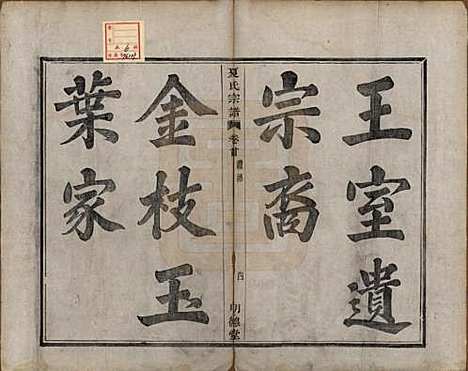 王室遺
宗裔
夏氏宗譜
卷首
明德堂
金枝玉
葉家